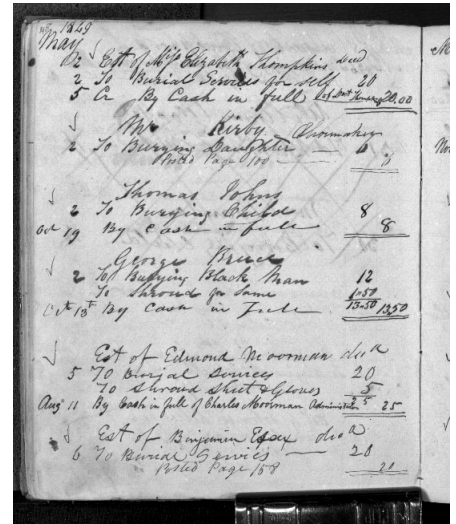 1849
May
2 Est of Mrs Elizabeth Thompkins decd
2 To Burial Services for self 20
5 Cr By Cash in full 20.00
Mr Kirby Shoemaker
2 To Burying Daughter 6
Posted Page 100 6
Thomas Johns
2 To Burying Child 8
Oct 19 By Cash in full 8
George Bruce
2 To Burying Black Man 12
To Shroud for Same 1.50
Oct 13th By Cash in full 13.50 13.50
Est of Edmond Moorman decd
5 To Burial Services 20
To Shroud Sheet & Gloves 5
Aug 11 By Cash in full of Charles Moorman Administrator 25 25
Est of Binjamin Essex decd
6 To Burial Servics 20
Posted Page 158 20